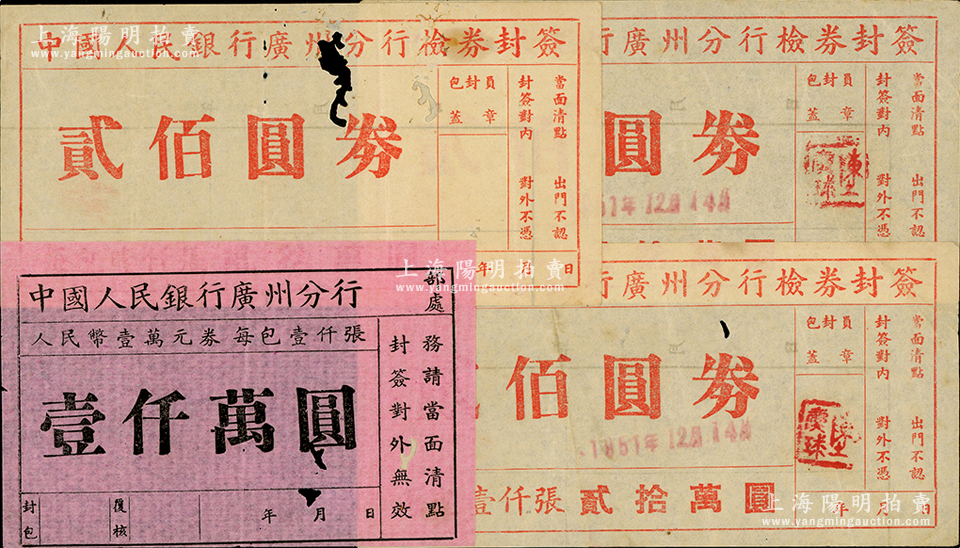 中國人民銀行廣州分行檢券封簽
貳佰圓券
包封員
蓋章
封簽對內 對外不憑
當面清點 出門不認
年 月 日
行廣州分行檢券封簽
圓券
包封員
蓋章
封簽對內 對外不憑
當面清點 出門不認
1951年12月14日
拾萬圓
中國人民銀行廣州分行
部處
人民幣壹萬元券每包壹仟張
壹仟萬圓
務請當面清點
封簽對外無效
封包
覆核
年 月 日
行廣州分行檢券封簽
佰圓券
包封員
蓋章
封簽對內 對外不憑
當面清點 出門不認
1951年12月14日
壹仟張貳拾萬圓
年 月 日
上海陽明拍賣
www.yangmingauction.com
上海陽明拍賣
www.yangmingauction.com
上海陽明拍賣
www.yangmingauction.com